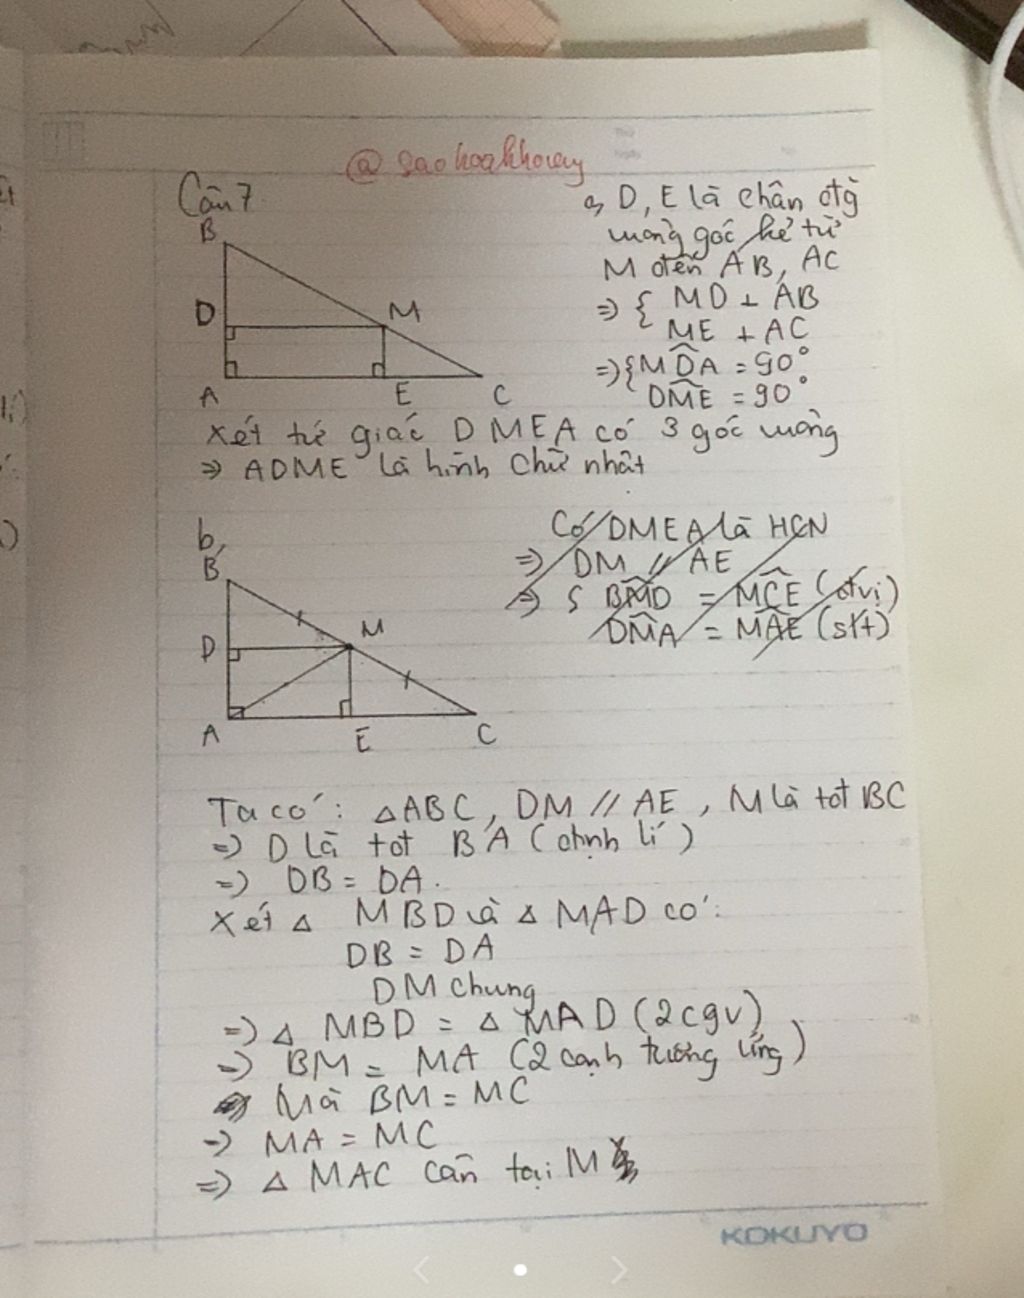 @saohoakhoiay
Câu 7
B
D
M
A
E
C
a, D, E là chân đtg
vuông góc kẻ từ
M đến AB, AC
=> { MD ⊥ AB
ME ⊥ AC
=> { MDA = 90°
DME = 90°
Xét tứ giác DMEA có 3 góc vuông
=> ADME là hình chữ nhật
b,
B
D
M
A
E
C
Có DMEA là HCN
=> DM // AE
=> { BMD = MCE (đvị)
DMA = MAE (slt)
Ta có: △ABC, DM // AE, M là tđt BC
=> D là tđt BA (định lí)
=> DB = DA.
Xét △ MBD và △ MAD có:
DB = DA
DM chung
=> △ MBD = △ MAD (2cgv)
=> BM = MA (2 cạnh tương ứng)
Mà BM = MC
=> MA = MC
=> △ MAC cân tại M
KOKUYO